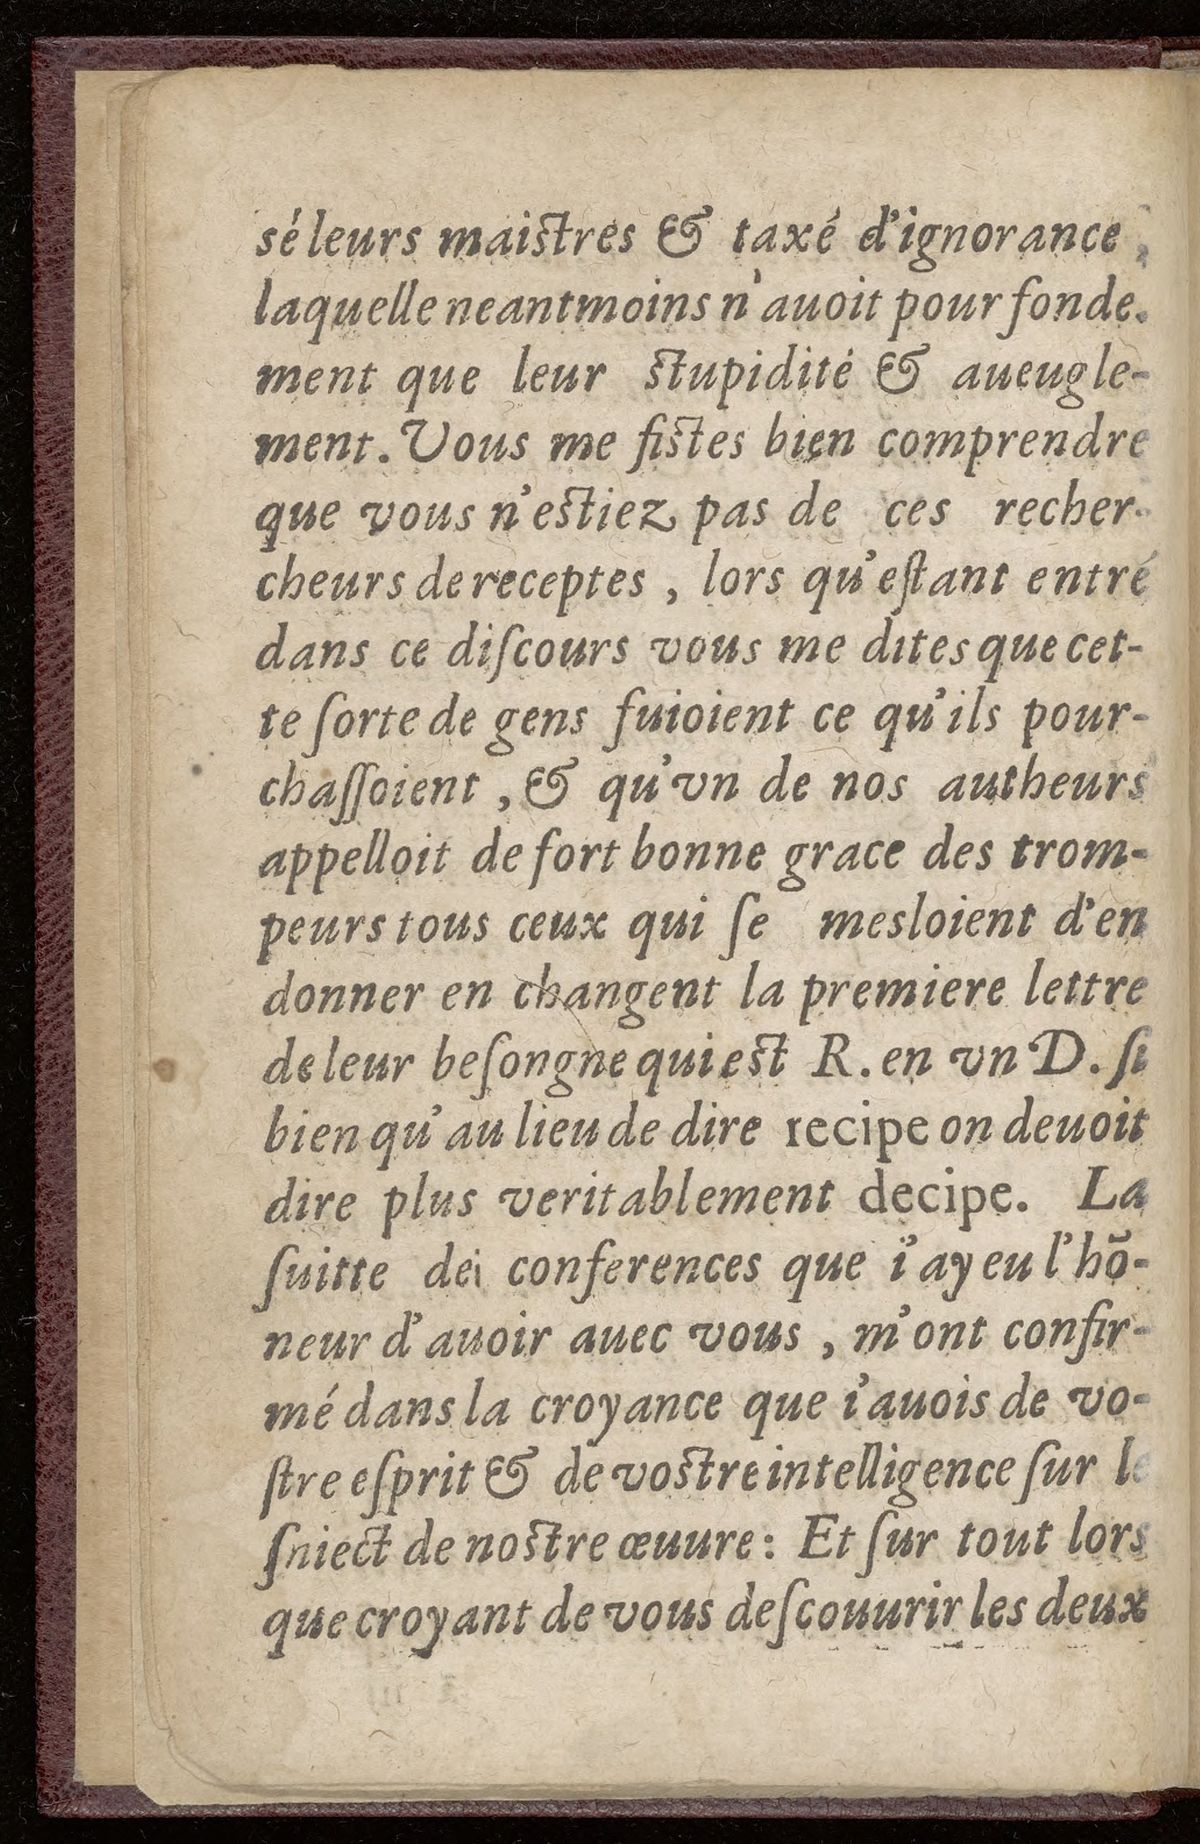 sé leurs maistres & taxé d'ignorance,
laquelle neantmoins n'auoit pour fonde-
ment que leur stupidité & aueugle-
ment. Vous me fistes bien comprendre
que vous n'estiez pas de ces recher-
cheurs de receptes, lors qu'eſtant entré
dans ce diſcours vous me dites que cet-
te ſorte de gens fuioient ce qu'ils pour-
chaſſoient, & qu'vn de nos autheurs
appelloit de fort bonne grace des trom-
peurs tous ceux qui ſe mesloient d'en
donner en changent la premiere lettre
de leur beſongne qui est R. en vn D. ſi
bien qu'au lieu de dire recipe on deuoit
dire plus veritablement decipe. La
ſuitte dei conferences que i'ay eu l'hō-
neur d'auoir auec vous, m'ont confir-
mé dans la croyance que i'auois de vo-
ſtre eſprit & de vostre intelligence ſur le
ſniect de nostre œuure: Et ſur tout lors
que croyant de vous deſcouurir les deux